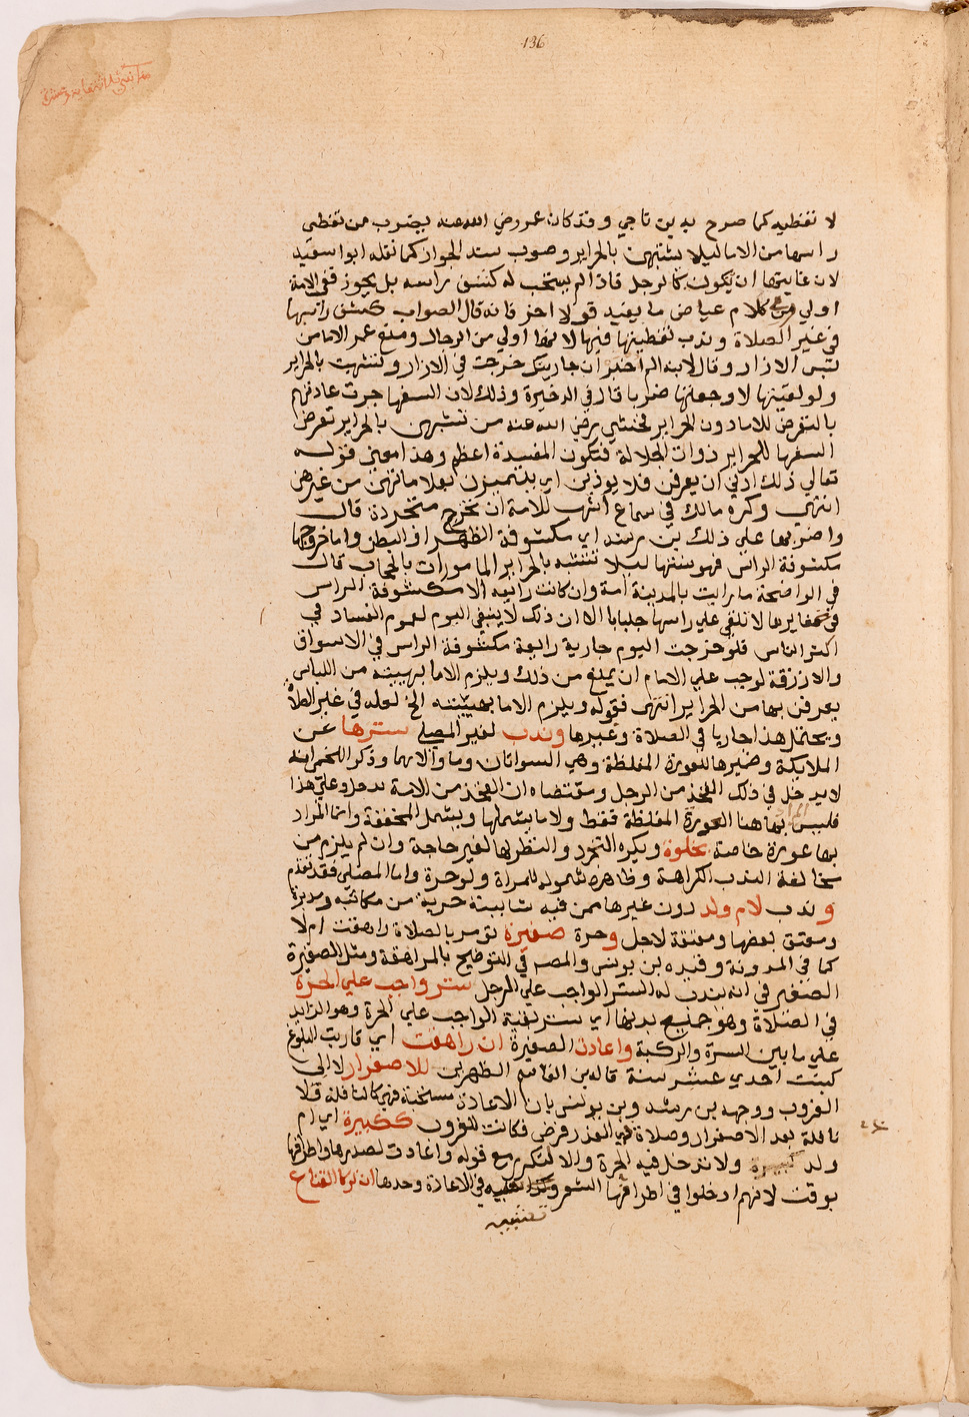 136
لا تغطيه كما صرح به بن ناجي وقد كان عمر رضي الله عنه يضرب من تغطي
راسها من الاماء ليلا يشتبهن بالحراير وصوب سند الجواز كما نقله ابو اسعيد
لان غايتها ان يكون كالرجل قاذا لم يستحب له كشف راسه بل يجوز ففي الامة
اولي وفي كلام عياض ما يفيد قولا اخر فانه قال الصواب كشف راسها
في غير الصلاة وندب تغطيتها فيها لانها اولي من الرجال ومنع عمر الاما من
لبس الازار وقال لابنه الم اخبر ان جاريتك خرجت في الازار وتشبهت بالحراير
ولو لقيتها لاوجعتها ضربا قال في الدخيرة وذلك لان السفها جرت عادتهم
بالتعرض للاما دون الحراير فخشي رضي الله عنه من تشبهن بالحراير تعرض
السفها للحراير ذوات الجلالة فتكون المفسدة اعظم وهذا معني قوله
تعالي ذلك ادني ان يعرفن فلا يوذين اي يتميزن بعلاماتهن من غيرهن
انتهي وكره مالك في سماع اشهب للامة ان تخرج متجردة قال
واضربها علي ذلك بن رشد اي مكشوفة الظهر او البطن واما خروجها
مكشوفة الراس فهو سنتها ليلا تتشبه بالحراير المامورات بالحجاب قال
في الواضحة ما رايت بالمدينة امة وان كانت رايعة الا مكشوفة الراس
في ضفايرها لا تلقي علي راسها جلبابا الا ان ذلك لا ينبغي اليوم لعموم الفساد في
اكثر الناس فلو خرجت اليوم جارية رايعة مكشوفة الراس في الاسواق
والازرقة لوجب علي الامام ان يمنع من ذلك ويلزم الاما بهيئة من اللباس
يعرفن بها من الحراير انتهى فقوله ويلزم الاما بهيئته الخ لعله في غير الصلاة
ويحتمل هذا جاريا في الصلاة وغيرها وندب لغير المصلي سترها عن
الملايكة وضميرها للعورة المغلظة وهي السواتان وما والاهما وذكر اللخمي انه
لا يدخل في ذلك الفخذ من الرجل ومقتضاه ان الفخذ من الامة يدخل وعلي هذا
فليس المراد بها هنا العورة المغلظة فقط ولا ما يشملها ويشمل المخففة وانما المراد
بها عورة خاصة بخلوة ويكره التجرد والنظر لها لغير حاجة وان لم يلزم من
مخالفة الندب الكراهة وظاهره شموله للمراة ولو حرة واما المصلي فقد تقدم
وندب لام ولد دون غيرها ممن فيه شايبة حرية من مكاتبه ومدبرة
ومعتق بعضها ومعتقة لاجل وحرة صغيرة تومر بالصلاة راهقت ام لا
كما في المدونة وقيده بن يونس والمص في التوضيح بالمراهقة ومثل الصغيرة
الصغير في انه يندب له الستر الواجب علي الرجل ستر واجب علي الحرة
في الصلاة وهو جميع بدنها اي ستر بقية الواجب علي الحرة وهو الزايد
علي ما بين السرة والركبة واعادت الصغيرة ان راهقت اي قاربت البلوغ
كبنت احدي عشر سنة قاله بن القاسم الظهرين للاصفرار لا الى
الغروب ووجهه بن رشد وبن يونس بان الاعادة مستحبة فهي كالنافلة فلا
نافلة بعد الاصفرار وصلاة ذي العذر فرض فكانت للغروب ككبيرة اي ام
ولد كبيرة ولا تدخل فيه الحرة والا لتكرر مع قوله واعادت لصدرها واطرافها
بوقت لانهم ادخلوا في اطرافها الشعر في الاعادة وحدها ان تركا القناع
تنبيه